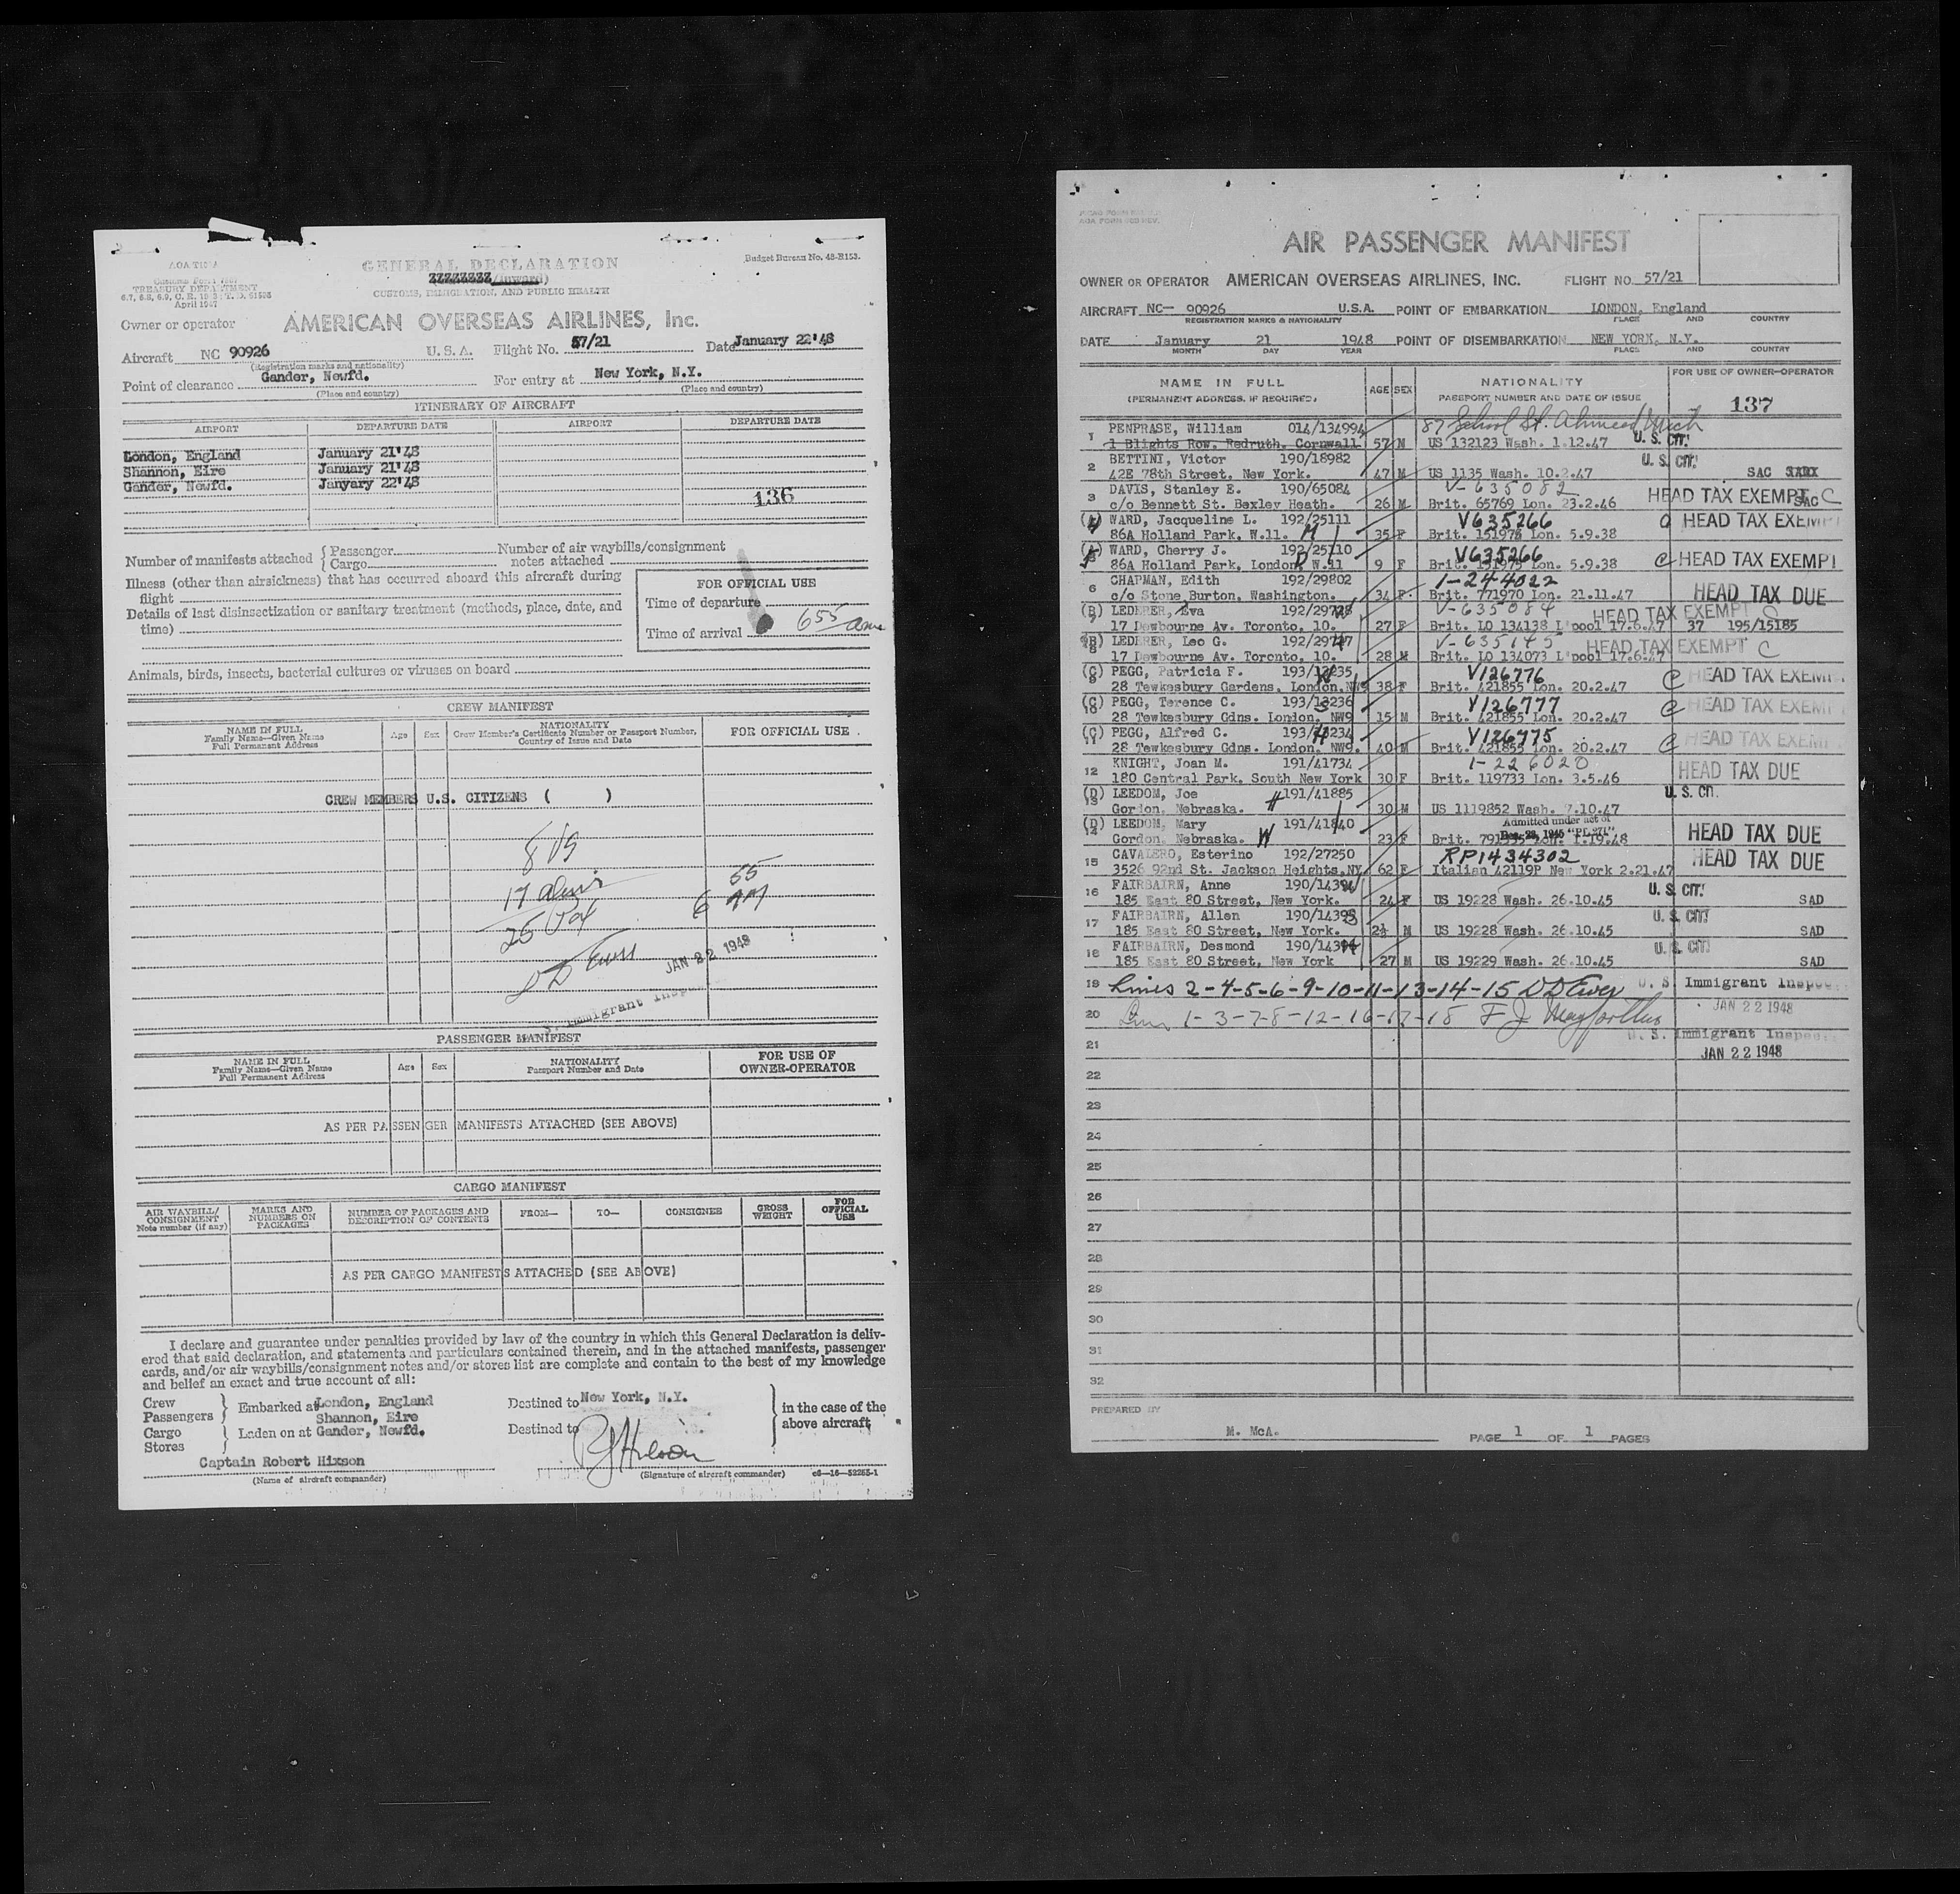 AOA TIMA
GENERAL DECLARATION
Budget Bureau No. 48-R153.
Customs Form 7507
TREASURY DEPARTMENT
6.7, 6.8, 6.9, C. R. 1943; T. D. 51525
April 1947
ZZZZZZZZ (Inward)
CUSTOMS, IMMIGRATION, AND PUBLIC HEALTH
Owner or operator AMERICAN OVERSEAS AIRLINES, Inc.
Aircraft NC 90926 U.S.A. Flight No. 57/21 Date January 22'48
(Registration marks and nationality)
Point of clearance Gander, Newfd. For entry at New York, N.Y.
(Place and country) (Place and country)
ITINERARY OF AIRCRAFT
AIRPORT DEPARTURE DATE AIRPORT DEPARTURE DATE
London, England January 21'48
Shannon, Eire January 21'48
Gander, Newfd. Janyary 22'48
136
Number of manifests attached { Passenger Number of air waybills/consignment
Cargo notes attached
Illness (other than airsickness) that has occurred aboard this aircraft during
flight
Details of last disinsectization or sanitary treatment (methods, place, date, and
time)
FOR OFFICIAL USE
Time of departure
Time of arrival 655 am
Animals, birds, insects, bacterial cultures or viruses on board
CREW MANIFEST
NAME IN FULL
Family Name—Given Name
Full Permanent Address
Age Sex
NATIONALITY
Crew Member's Certificate Number or Passport Number,
Country of Issue and Date
FOR OFFICIAL USE
CREW MEMBERS U.S. CITIZENS ( )
8 US
17 aliens
25 Tot
6 55 AM
DD Ewer
JAN 22 1948
Immigrant Inspector
PASSENGER MANIFEST
NAME IN FULL
Family Name—Given Name
Full Permanent Address
Age Sex
NATIONALITY
Passport Number and Date
FOR USE OF
OWNER-OPERATOR
AS PER PASSENGER MANIFESTS ATTACHED (SEE ABOVE)
CARGO MANIFEST
AIR WAYBILL/
CONSIGNMENT
Note number (if any)
MARKS AND
NUMBERS ON
PACKAGES
NUMBER OF PACKAGES AND
DESCRIPTION OF CONTENTS
FROM— TO— CONSIGNEE
GROSS
WEIGHT
FOR
OFFICIAL
USE
AS PER CARGO MANIFESTS ATTACHED (SEE ABOVE)
I declare and guarantee under penalties provided by law of the country in which this General Declaration is deliv-
ered that said declaration, and statements and particulars contained therein, and in the attached manifests, passenger
cards, and/or air waybills/consignment notes and/or stores list are complete and contain to the best of my knowledge
and belief an exact and true account of all:
Crew
Passengers } Embarked at London, England Destined to New York, N.Y.
Shannon, Eire
Cargo
Stores } Laden on at Gander, Newfd. Destined to
in the case of the
above aircraft
Captain Robert Hixson
RJHixson
(Name of aircraft commander) (Signature of aircraft commander) c6—16—52255-1
AIR PASSENGER MANIFEST
OWNER OR OPERATOR AMERICAN OVERSEAS AIRLINES, INC. FLIGHT NO 57/21
AIRCRAFT NC— 90926 U.S.A. POINT OF EMBARKATION LONDON, England
REGISTRATION MARKS & NATIONALITY PLACE AND COUNTRY
DATE January 21 1948 POINT OF DISEMBARKATION NEW YORK, N.Y.
MONTH DAY YEAR PLACE AND COUNTRY
NAME IN FULL AGE SEX NATIONALITY FOR USE OF OWNER-OPERATOR
(PERMANENT ADDRESS, IF REQUIRED) PASSPORT NUMBER AND DATE OF ISSUE 137
PENPRASE, William 014/134994 87 School St. Ahmeek Mich
1 1 Blights Row, Redruth, Cornwall 57 M US 132123 Wash. 1.12.47 U.S. CIT.
BETTINI, Victor 190/18982 U.S. CIT.
2 42E 78th Street, New York. 47 M US 1135 Wash. 10.2.47 SAC
DAVIS, Stanley E. 190/65084 V-635082
3 c/o Bennett St. Bexley Heath. 26 M Brit. 65769 Lon. 23.2.46 HEAD TAX EXEMPT SAC C
(A) WARD, Jacqueline L. 192/25111 V635266 HEAD TAX EXEMPT
86A Holland Park, W.11. M 35 F Brit. 151975 Lon. 5.9.38
(A) WARD, Cherry J. 192/25110 V635266 C HEAD TAX EXEMPT
86A Holland Park, London W.11 9 F Brit. 151975 Lon. 5.9.38
CHAPMAN, Edith 192/29802 1-244022
6 c/o Stone, Burton, Washington. 34 F Brit. 771970 Lon. 21.11.47 HEAD TAX DUE
(B) LEDERER, Eva 192/29728 V-635084 HEAD TAX EXEMPT C
7 17 Dewbourne Av. Toronto, 10. 27 F Brit. LO 134138 L'pool 17.6.47 37 195/15185
(B) LEDERER, Leo G. 192/29727 V-635145 HEAD TAX EXEMPT C
8 17 Dewbourne Av. Toronto, 10. 28 M Brit. LO 134073 L'pool 17.6.47
(C) PEGG, Patricia F. 193/13235 V126776 C HEAD TAX EXEMPT
9 28 Tewkesbury Gardens, London, NW9 38 F Brit. 421855 Lon. 20.2.47
(C) PEGG, Terence C. 193/13236 V126777 C HEAD TAX EXEMPT
10 28 Tewkesbury Gdns. London. NW9 15 M Brit. 421855 Lon. 20.2.47
(C) PEGG, Alfred C. 193/13234 V126775 C HEAD TAX EXEMPT
11 28 Tewkesbury Gdns. London. NW9. 40 M Brit. 421855 Lon. 20.2.47
KNIGHT, Joan M. 191/41734 1-226020
12 180 Central Park, South New York 30 F Brit. 119733 Lon. 3.5.46 HEAD TAX DUE
(D) LEEDOM, Joe 191/41885 U.S. CIT.
13 Gordon, Nebraska. H 30 M US 1119852 Wash. 7.10.47
(D) LEEDOM, Mary 191/41840 Admitted under act of Dec. 28, 1945 "PL 271"
14 Gordon, Nebraska. W 23 F Brit. Lon. 1.19.48 HEAD TAX DUE
CAVALERO, Esterino 192/27250 RP1434302 HEAD TAX DUE
15 3526 92nd St. Jackson Heights, NY 62 F Italian 42119P New York 2.21.47
FAIRBAIRN, Anne U.S. CIT.
16 185 East 80 Street, New York. 24 F US 19228 Wash. 26.10.45 SAD
FAIRBAIRN, Allen 190/14393 U.S. CIT.
17 185 East 80 Street, New York. 2½ M US 19228 Wash. 26.10.45 SAD
FAIRBAIRN, Desmond U.S. CIT.
18 185 East 80 Street, New York 27 M US 19229 Wash. 26.10.45 SAD
19 Lines 2-4-5-6-9-10-11-13-14-15 DDEwer U.S. Immigrant Inspec
JAN 22 1948
20 Lines 1-3-7-8-12-16-17-18 F J
U.S. Immigrant Inspec
21 JAN 22 1948
22
23
24
25
26
27
28
29
30
31
32
PREPARED BY
M. McA. PAGE 1 OF 1 PAGES